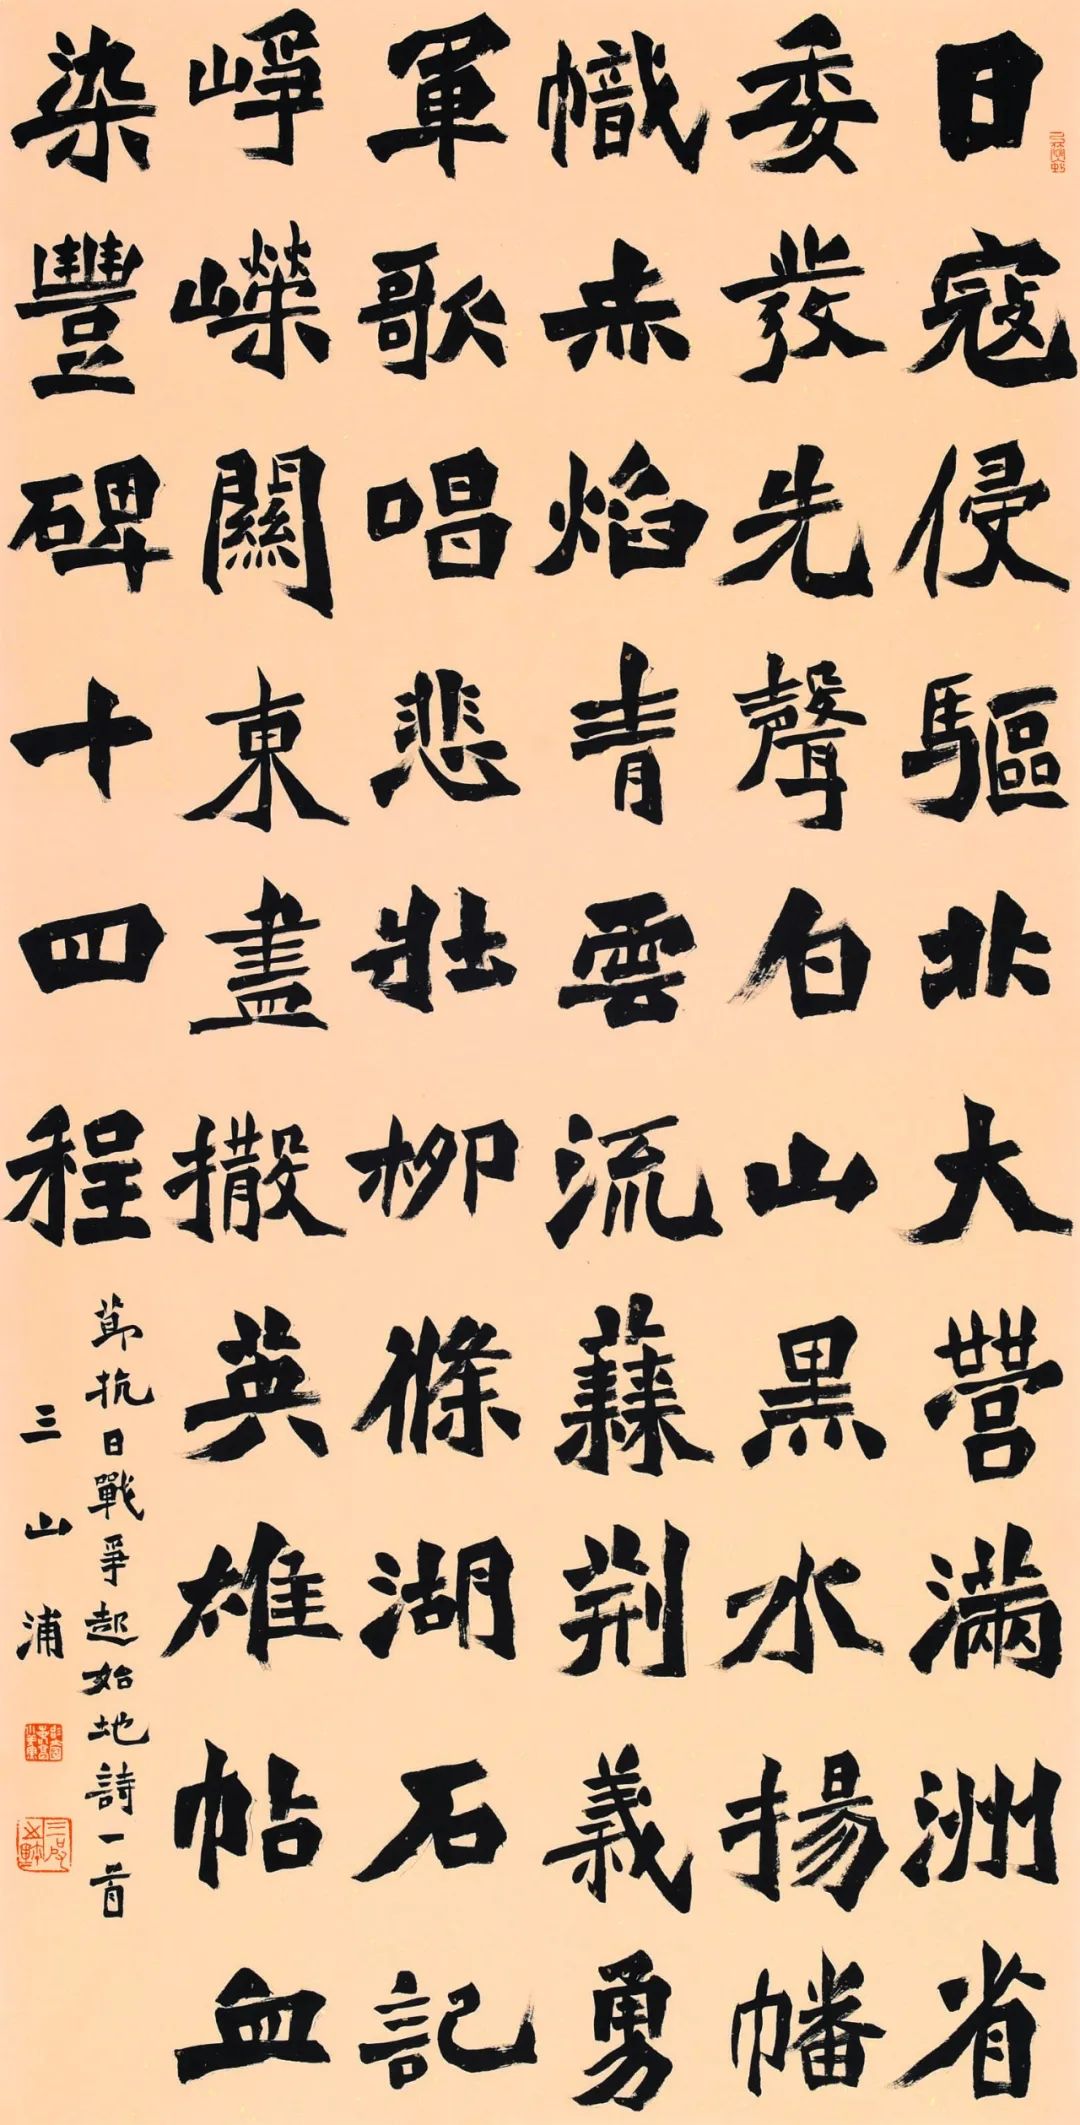 日寇侵驅北大營滿洲省
委發先聲白山黑水揚幡
幟赤焰青雲流蘇荆義勇
軍歌唱悲壯柳條湖石記
崢嶸關東盡撒英雄帖血
染豐碑十四程
節抗日戰爭起始地詩一首
三山浦